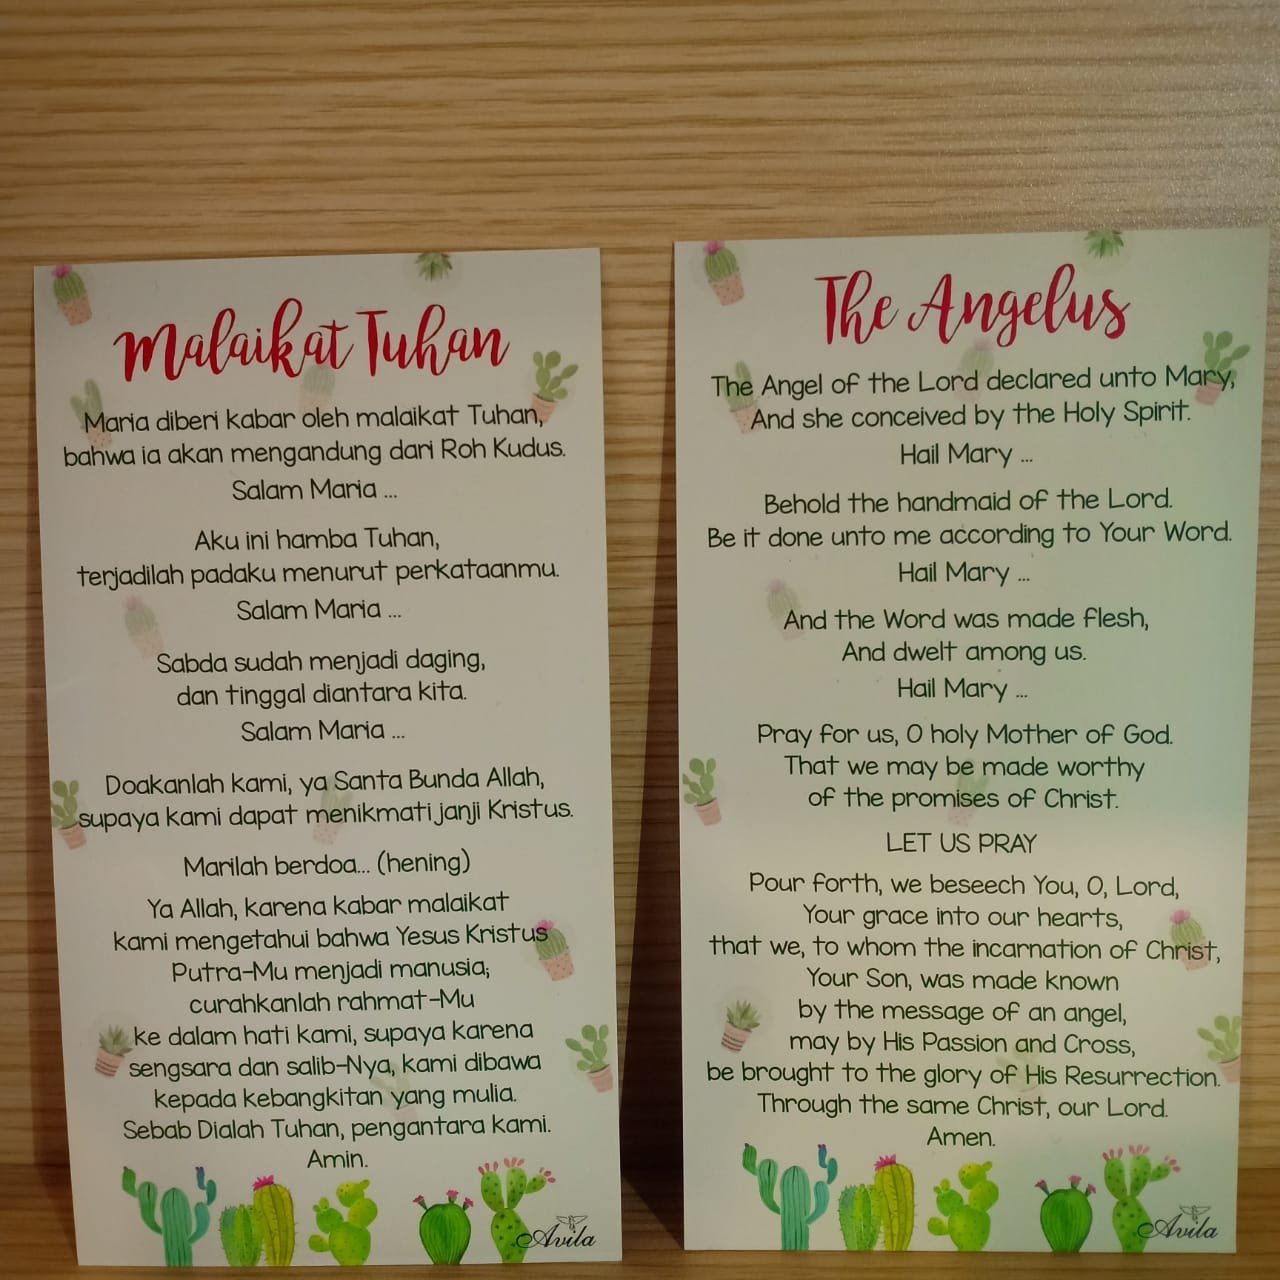 Malaikat Tuhan
Maria diberi kabar oleh malaikat Tuhan,
bahwa ia akan mengandung dari Roh Kudus.
Salam Maria ...
Aku ini hamba Tuhan,
terjadilah padaku menurut perkataanmu.
Salam Maria ...
Sabda sudah menjadi daging,
dan tinggal diantara kita.
Salam Maria ...
Doakanlah kami, ya Santa Bunda Allah,
supaya kami dapat menikmati janji Kristus.
Marilah berdoa... (hening)
Ya Allah, karena kabar malaikat
kami mengetahui bahwa Yesus Kristus
Putra-Mu menjadi manusia;
curahkanlah rahmat-Mu
ke dalam hati kami, supaya karena
sengsara dan salib-Nya, kami dibawa
kepada kebangkitan yang mulia.
Sebab Dialah Tuhan, pengantara kami.
Amin.
Avila
The Angelus
The Angel of the Lord declared unto Mary,
And she conceived by the Holy Spirit.
Hail Mary ...
Behold the handmaid of the Lord.
Be it done unto me according to Your Word.
Hail Mary ...
And the Word was made flesh,
And dwelt among us.
Hail Mary ...
Pray for us, O holy Mother of God.
That we may be made worthy
of the promises of Christ.
LET US PRAY
Pour forth, we beseech You, O, Lord,
Your grace into our hearts,
that we, to whom the incarnation of Christ,
Your Son, was made known
by the message of an angel,
may by His Passion and Cross,
be brought to the glory of His Resurrection.
Through the same Christ, our Lord.
Amen.
Avila